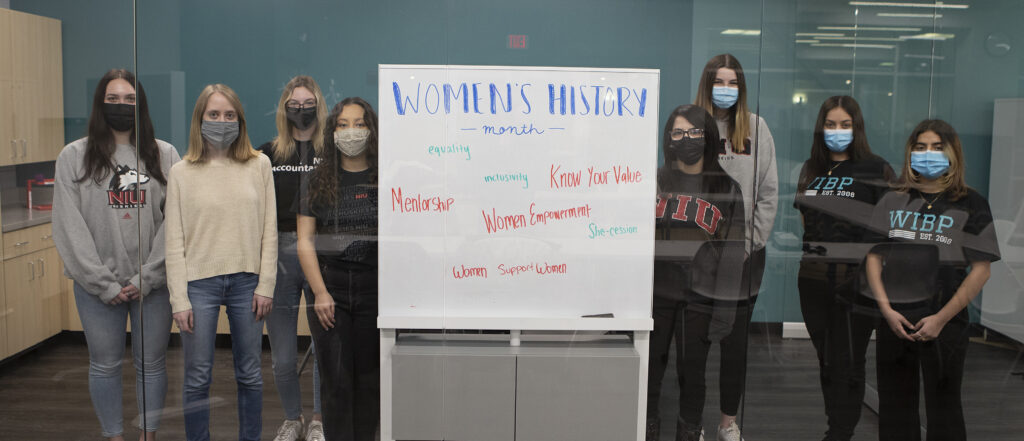 WOMEN'S HISTORY
— month —
equality
inclusivity
Know Your Value
Mentorship
Women Empowerment
She-cession
Women Support Women
NIU
HUSKIES
accounta
NIU
NIU
WIBP
EST. 2006
WIBP
EST. 2006